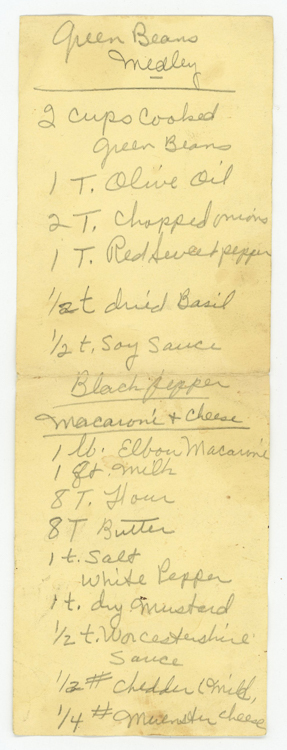 Green Beans
Medley
2 cups cooked
green Beans
1 T. Olive Oil
2 T. chopped onions
1 T. Red sweet pepper
1/2 t dried Basil
1/2 t. Soy Sauce
Black pepper
Macaroni + cheese
1 lb. Elbow Macaroni
1 qt. milk
8 T. Flour
8 T Butter
1 t. Salt
White Pepper
1 t. dry Mustard
1/2 t. Worcestershire
Sauce
1/2 # Chedder (mild,
1/4 # Muenster cheese